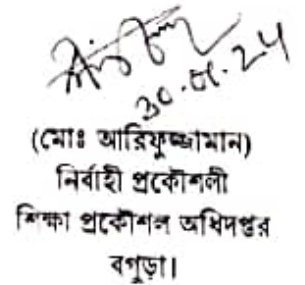 (মোঃ আরিফুজ্জামান)
নির্বাহী প্রকৌশলী
শিক্ষা প্রকৌশল অধিদপ্তর
বগুড়া।